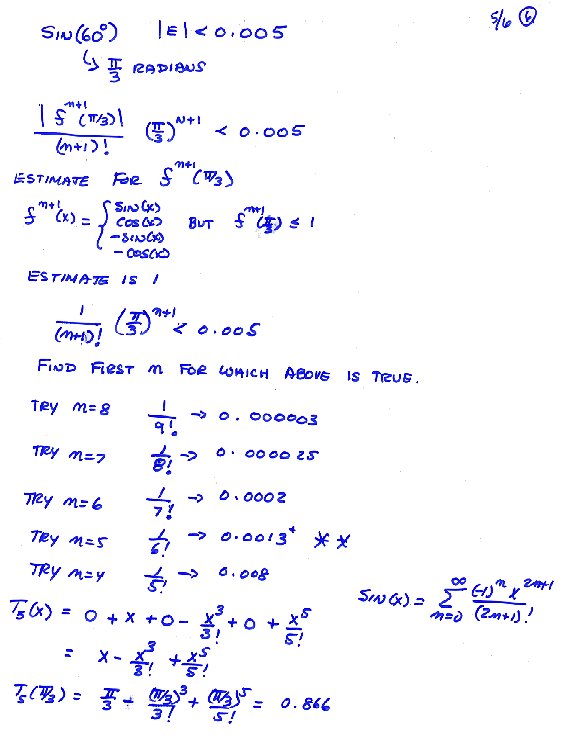 5/6 ⑥
SIN(60°) |E| < 0.005
↳ π/3 RADIANS
|f^{n+1}(π/3)| / (n+1)! (π/3)^{n+1} < 0.005
ESTIMATE FOR f^{n+1}(π/3)
f^{n+1}(x) = { SIN(x) COS(x) -SIN(x) -COS(x) BUT f^{n+1}(π/3) ≤ 1
ESTIMATE IS 1
1/(n+1)! (π/3)^{n+1} < 0.005
FIND FIRST n FOR WHICH ABOVE IS TRUE.
TRY n=8 1/9! → 0.000003
TRY n=7 1/8! → 0.000025
TRY n=6 1/7! → 0.0002
TRY n=5 1/6! → 0.0013⁺ **
TRY n=4 1/5! → 0.008
SIN(x) = ∑_{n=0}^{∞} (-1)^n x^{2n+1} / (2n+1)!
T₅(x) = 0 + x + 0 - x³/3! + 0 + x⁵/5!
= x - x³/3! + x⁵/5!
T₅(π/3) = π/3 - (π/3)³/3! + (π/3)⁵/5! = 0.866